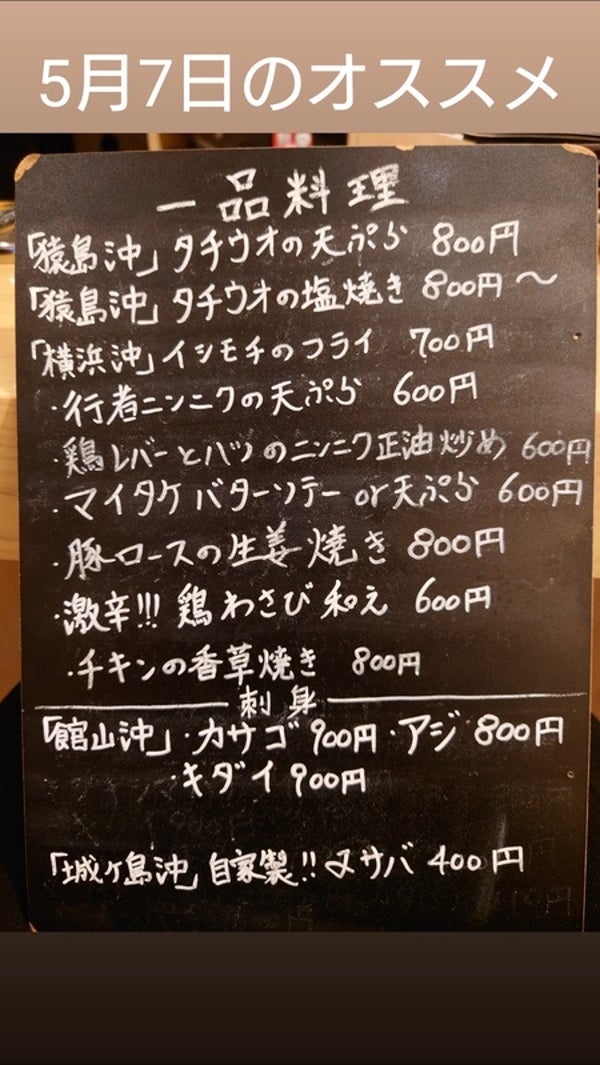 5月7日のオススメ
一品料理
「猿島沖」タチウオの天ぷら 800円
「猿島沖」タチウオの塩焼き 800円〜
「横浜沖」イシモチのフライ 700円
・行者ニンニクの天ぷら 600円
・鶏レバーとハツのニンニク正油炒め 600円
・マイタケバターソテーor天ぷら 600円
・豚ロースの生姜焼き 800円
・激辛!!! 鶏わさび和え 600円
・チキンの香草焼き 800円
刺身
「館山沖」・カサゴ 900円・アジ 800円
・キダイ 900円
「城ヶ島沖」自家製!! 〆サバ 400円